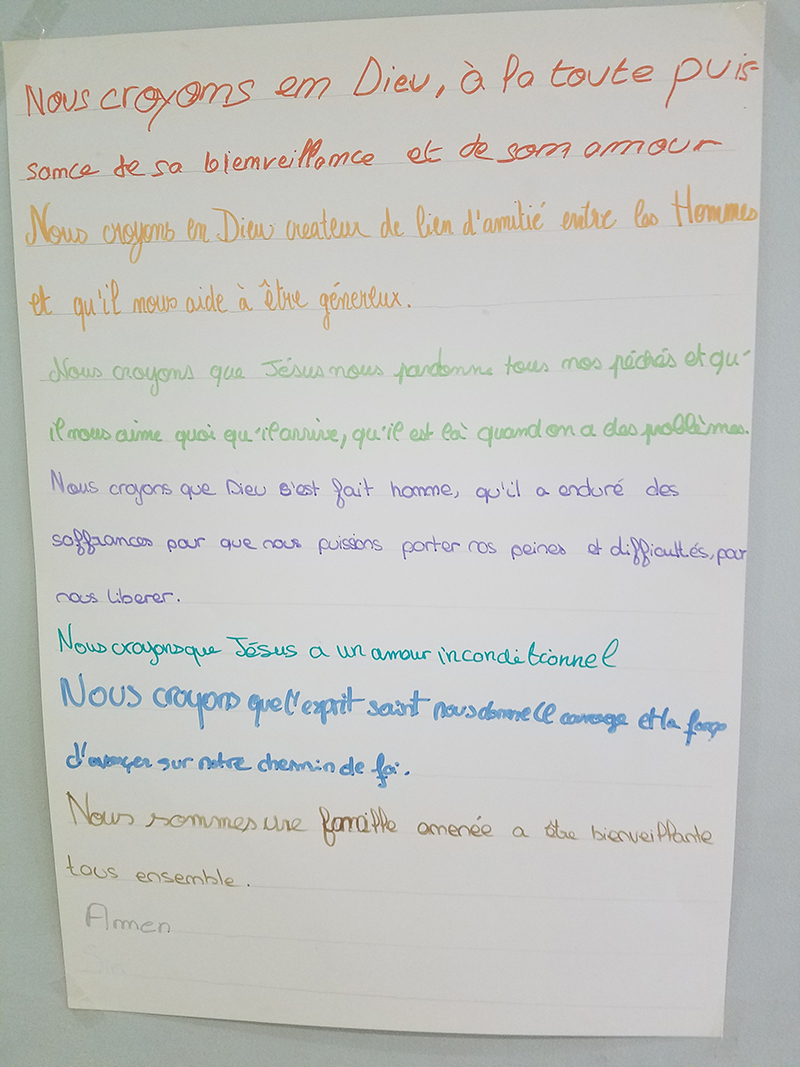 Nous croyons en Dieu, à la toute puis-
sance de sa bienveillance et de son amour
Nous croyons en Dieu createur de lien d'amitié entre les Hommes
et qu'il nous aide à être génereux.
Nous croyons que Jésus nous pardonne tous nos péchés et qu'
il nous aime quoi qu'il arrive, qu'il est là quand on a des problèmes.
Nous croyons que Dieu s'est fait homme, qu'il a enduré des
soffrances pour que nous puissions porter nos peines et difficultés, pour
nous liberer.
Nous croyons que Jésus a un amour inconditionnel
Nous croyons que l'esprit saint nous donne le courage et la force
d'avançer sur notre chemin de foi.
Nous sommes une famille amenée a être bienveillante
tous ensemble.
Amen